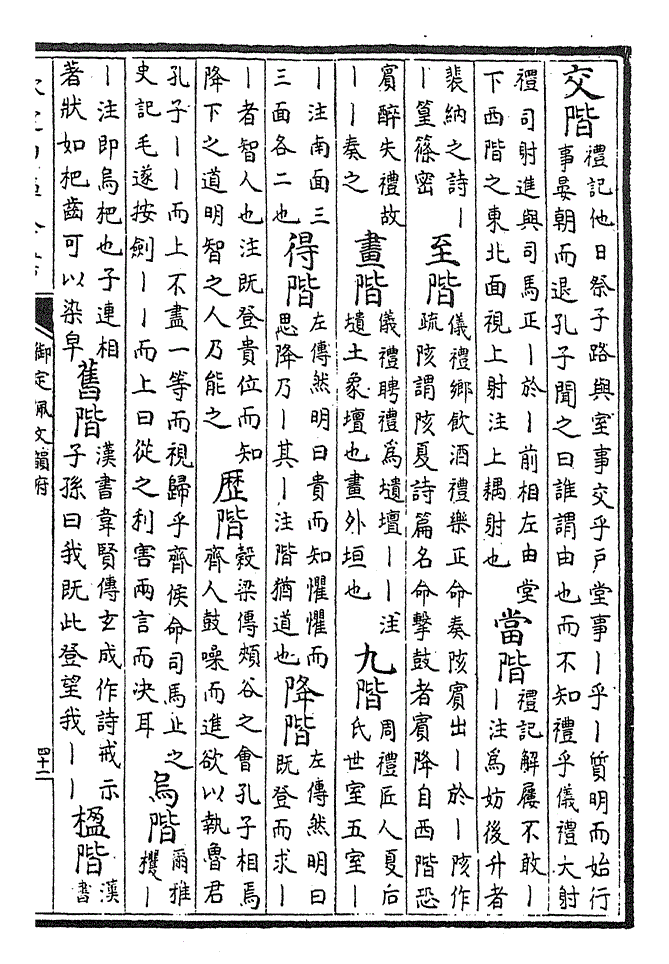 交階
禮記他日祭子路與室事交乎戶堂事丨乎丨質明而始行
事晏朝而退孔子聞之曰誰謂由也而不知禮乎儀禮大射
禮司射進與司馬正丨於丨前相左由堂
下西階之東北面視上射注上耦射也
當階
禮記解屨不敢丨
丨注爲妨後升者
裴納之詩丨
丨篁篠密
至階
儀禮鄉飲酒禮樂正命奏陔賓出丨於丨陔作
疏陔謂陔夏詩篇名命擊鼓者賓降自西階恐
賓醉失禮故
丨丨奏之
畫階
儀禮聘禮爲壝壇丨丨注
壝土象壇也畫外垣也
九階
周禮匠人夏后
氏世室五室丨
丨注南面三
三面各二也
得階
左傳然明曰貴而知懼懼而
思降乃丨其丨注階猶道也
降階
左傳然明曰
既登而求丨
丨者智人也注既登貴位而知
降下之道明智之人乃能之
歴階
穀梁傳頰谷之會孔子相焉
齊人鼓噪而進欲以執魯君
孔子丨丨而上不盡一等而視歸乎齊侯命司馬止之
史記毛遂按劍丨丨而上曰從之利害兩言而决耳
烏階
爾雅
攫丨
丨注即烏杷也子連相
著狀如杷齒可以染皁
舊階
漢書韋賢傳玄成作詩戒示
子孫曰我既此登望我丨丨
楹階
漢
書
御定佩文韻府
四十二